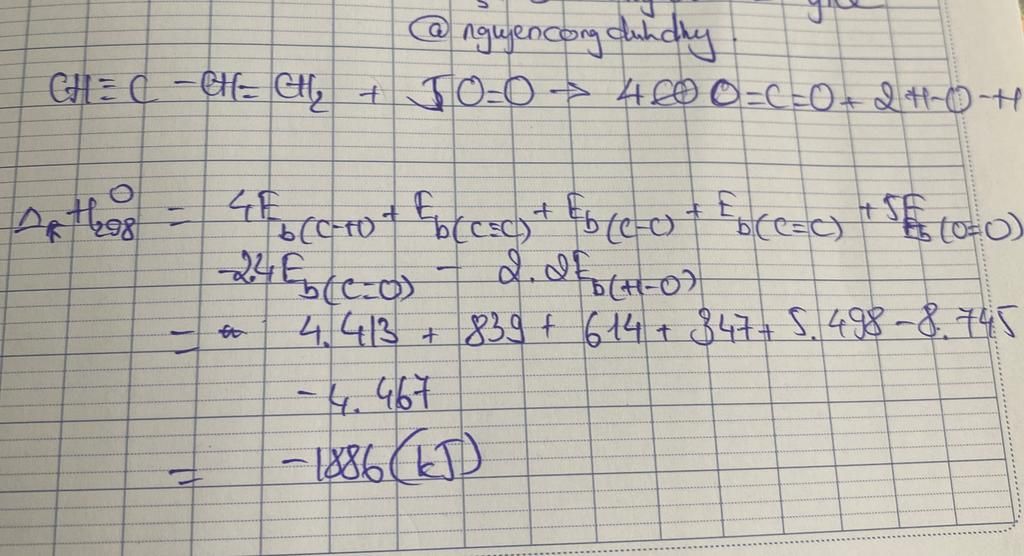 @nguyencongduhdhy
CH≡C-CH=CH₂ + 5O=O → 4 O=C=O + 2H-O-H
ΔᵣH⁰₂₉₈ = 4E_b(C-H) + E_b(C≡C) + E_b(C-C) + E_b(C=C) + 5E_b(O=O)
-2.4E_b(C=O) - 2.2E_b(H-O)
= 4.413 + 839 + 614 + 347 + 5.498 - 8.745
- 4.467
= -1886(kJ)